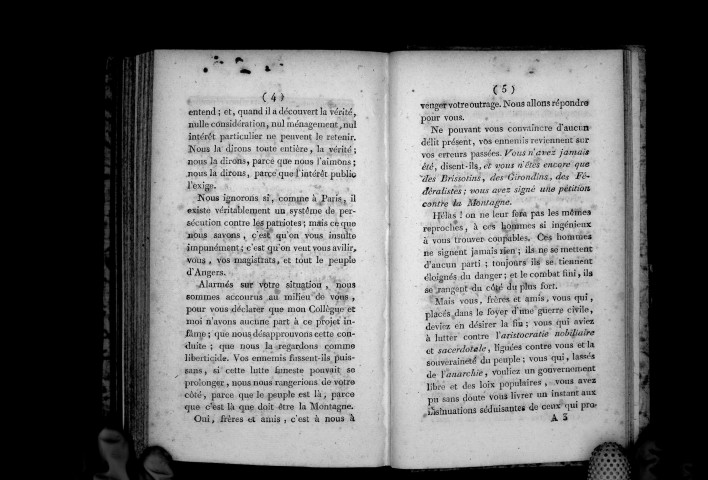 ( 4 )
entend ; et, quand il a découvert la vérité,
nulle considération, nul ménagement, nul
intérêt particulier ne peuvent le retenir.
Nous la dirons toute entière, la vérité ;
nous la dirons, parce que nous l'aimons ;
nous la dirons, parce que l'intérêt public
l'exige.
Nous ignorons si, comme à Paris, il
existe véritablement un système de per-
sécution contre les patriotes ; mais ce que
nous savons, c'est qu'on vous insulte
impunément ; c'est qu'on veut vous avilir,
vous, vos magistrats, et tout le peuple
d'Angers.
Alarmés sur votre situation, nous
sommes accourus au milieu de vous,
pour vous déclarer que mon Collègue et
moi n'avons aucune part à ce projet in-
fâme ; que nous désapprouvons cette con-
duite ; que nous la regardons comme
liberticide. Vos ennemis fussent-ils puis-
sans, si cette lutte funeste pouvait se
prolonger, nous nous rangerions de votre
côté, parce que le peuple est là, parce
que c'est là que doit être la Montagne.
Oui, frères et amis, c'est à nous à
( 5 )
venger votre outrage. Nous allons répondre
pour vous.
Ne pouvant vous convaincre d'aucun
délit présent, vos ennemis reviennent sur
vos erreurs passées. Vous n'avez jamais
été, disent-ils, et vous n'êtes encore que
des Brissotins, des Girondins, des Fé-
déralistes ; vous avez signé une pétition
contre la Montagne.
Hélas ! on ne leur fera pas les mêmes
reproches, à ces hommes si ingénieux
à vous trouver coupables. Ces hommes
ne signent jamais rien ; ils ne se mettent
d'aucun parti ; toujours ils se tiennent
éloignés du danger ; et le combat fini, ils
se rangent du côté du plus fort.
Mais vous, frères et amis, vous qui,
placés dans le foyer d'une guerre civile,
deviez en désirer la fin ; vous qui aviez
à lutter contre l'aristocratie nobiliaire
et sacerdotale, liguées contre vous et la
souveraineté du peuple ; vous qui, lassés
de l'anarchie, vouliez un gouvernement
libre et des loix populaires, vous avez
pu sans doute vous livrer un instant aux
insinuations séduisantes de ceux qui pro-
A 3